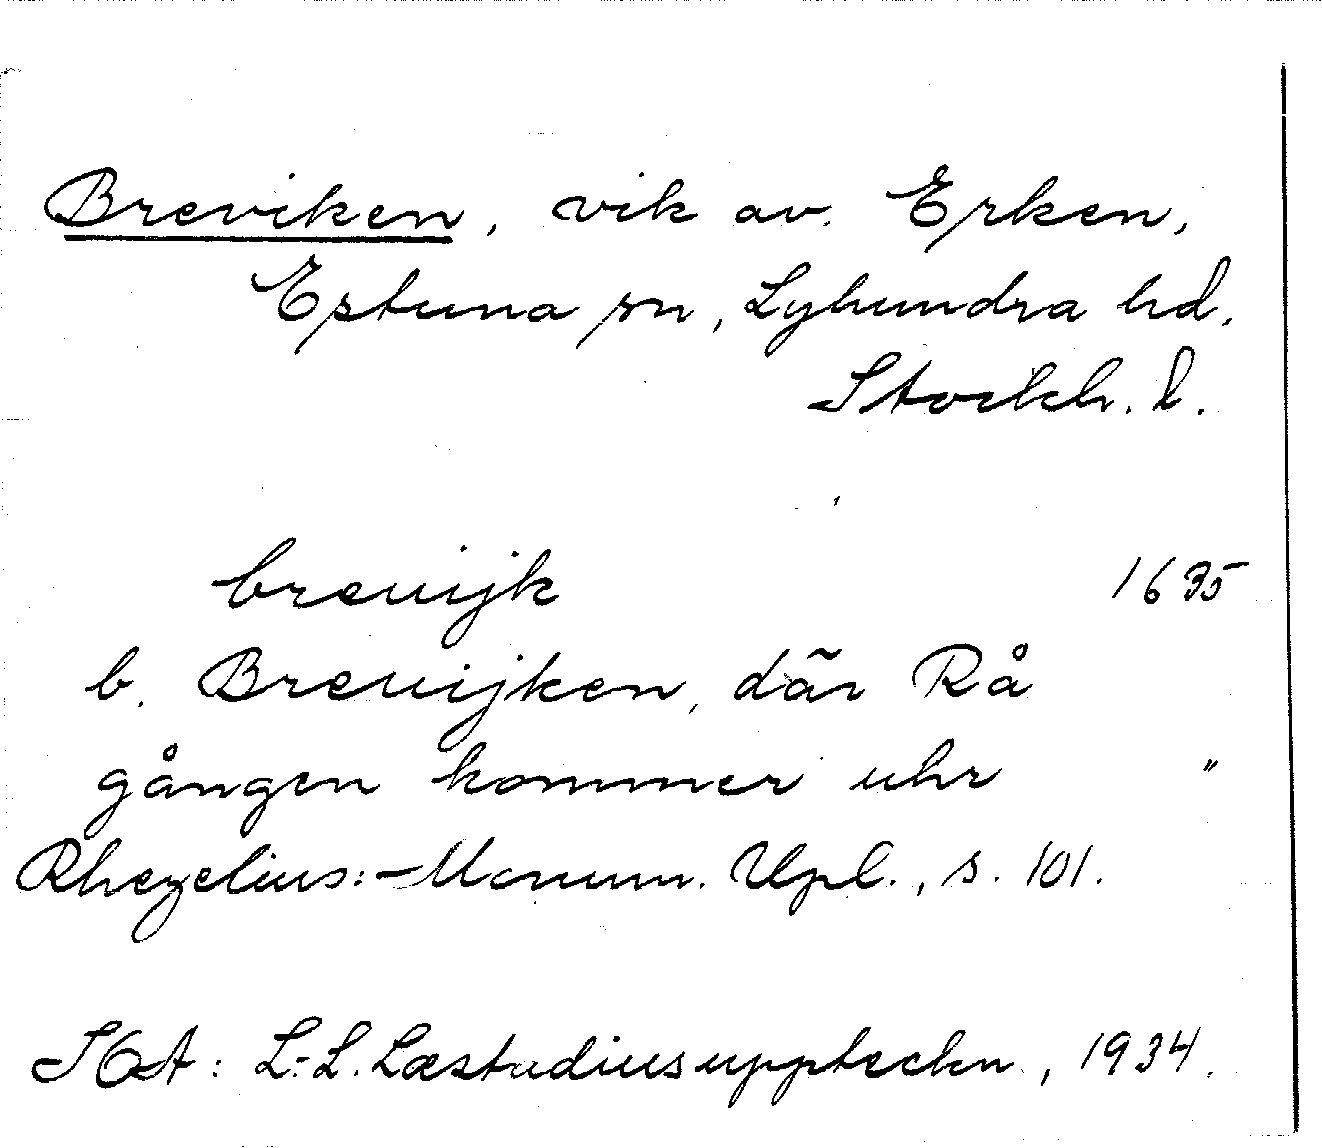 Breviken, vik av. Erken,
Estuna sn, Lyhundra hd.
Stockh. l.
breuijk 1635
b. Breuijken, där Rå
gången kommer uhr "
Rhezelius: Monum. Upl., s. 101.
SOA: L.-L. Læstadius uppteckn., 1934.